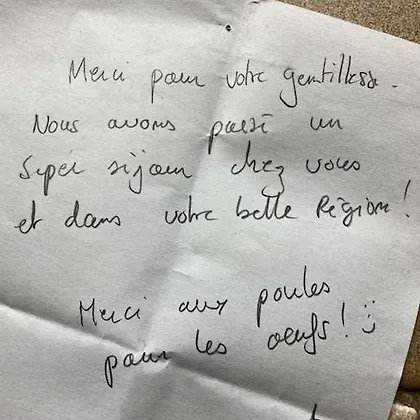 Merci pour votre gentillesse.
Nous avons passé un
super séjour chez vous
et dans votre belle Région !
Merci aux poules
pour les oeufs ! :)